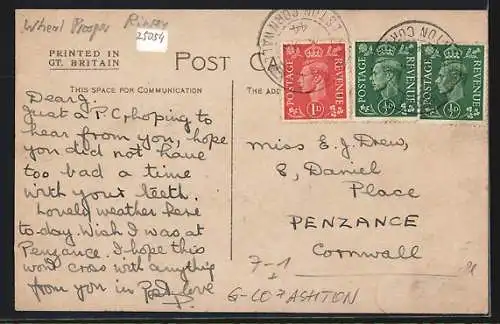 Wheal Prosper Rinsey
25054
PRINTED IN
GT. BRITAIN
POST CA
THIS SPACE FOR COMMUNICATION
THE ADD
STON CORNWALL
STON COR
POSTAGE REVENUE
1D
POSTAGE REVENUE
½D
POSTAGE REVENUE
½D
Dear J.
Just a P.C, hoping to
hear from you, hope
you did not have
too bad a time
with your teeth.
Lovely weather here
to-day. Wish I was at
Penzance. I hope this
wont cross with anything
from you in Post, love
Miss E. J. Drew,
8, Daniel
Place
PENZANCE
Cornwall
7-1
G-CO7 ASHTON